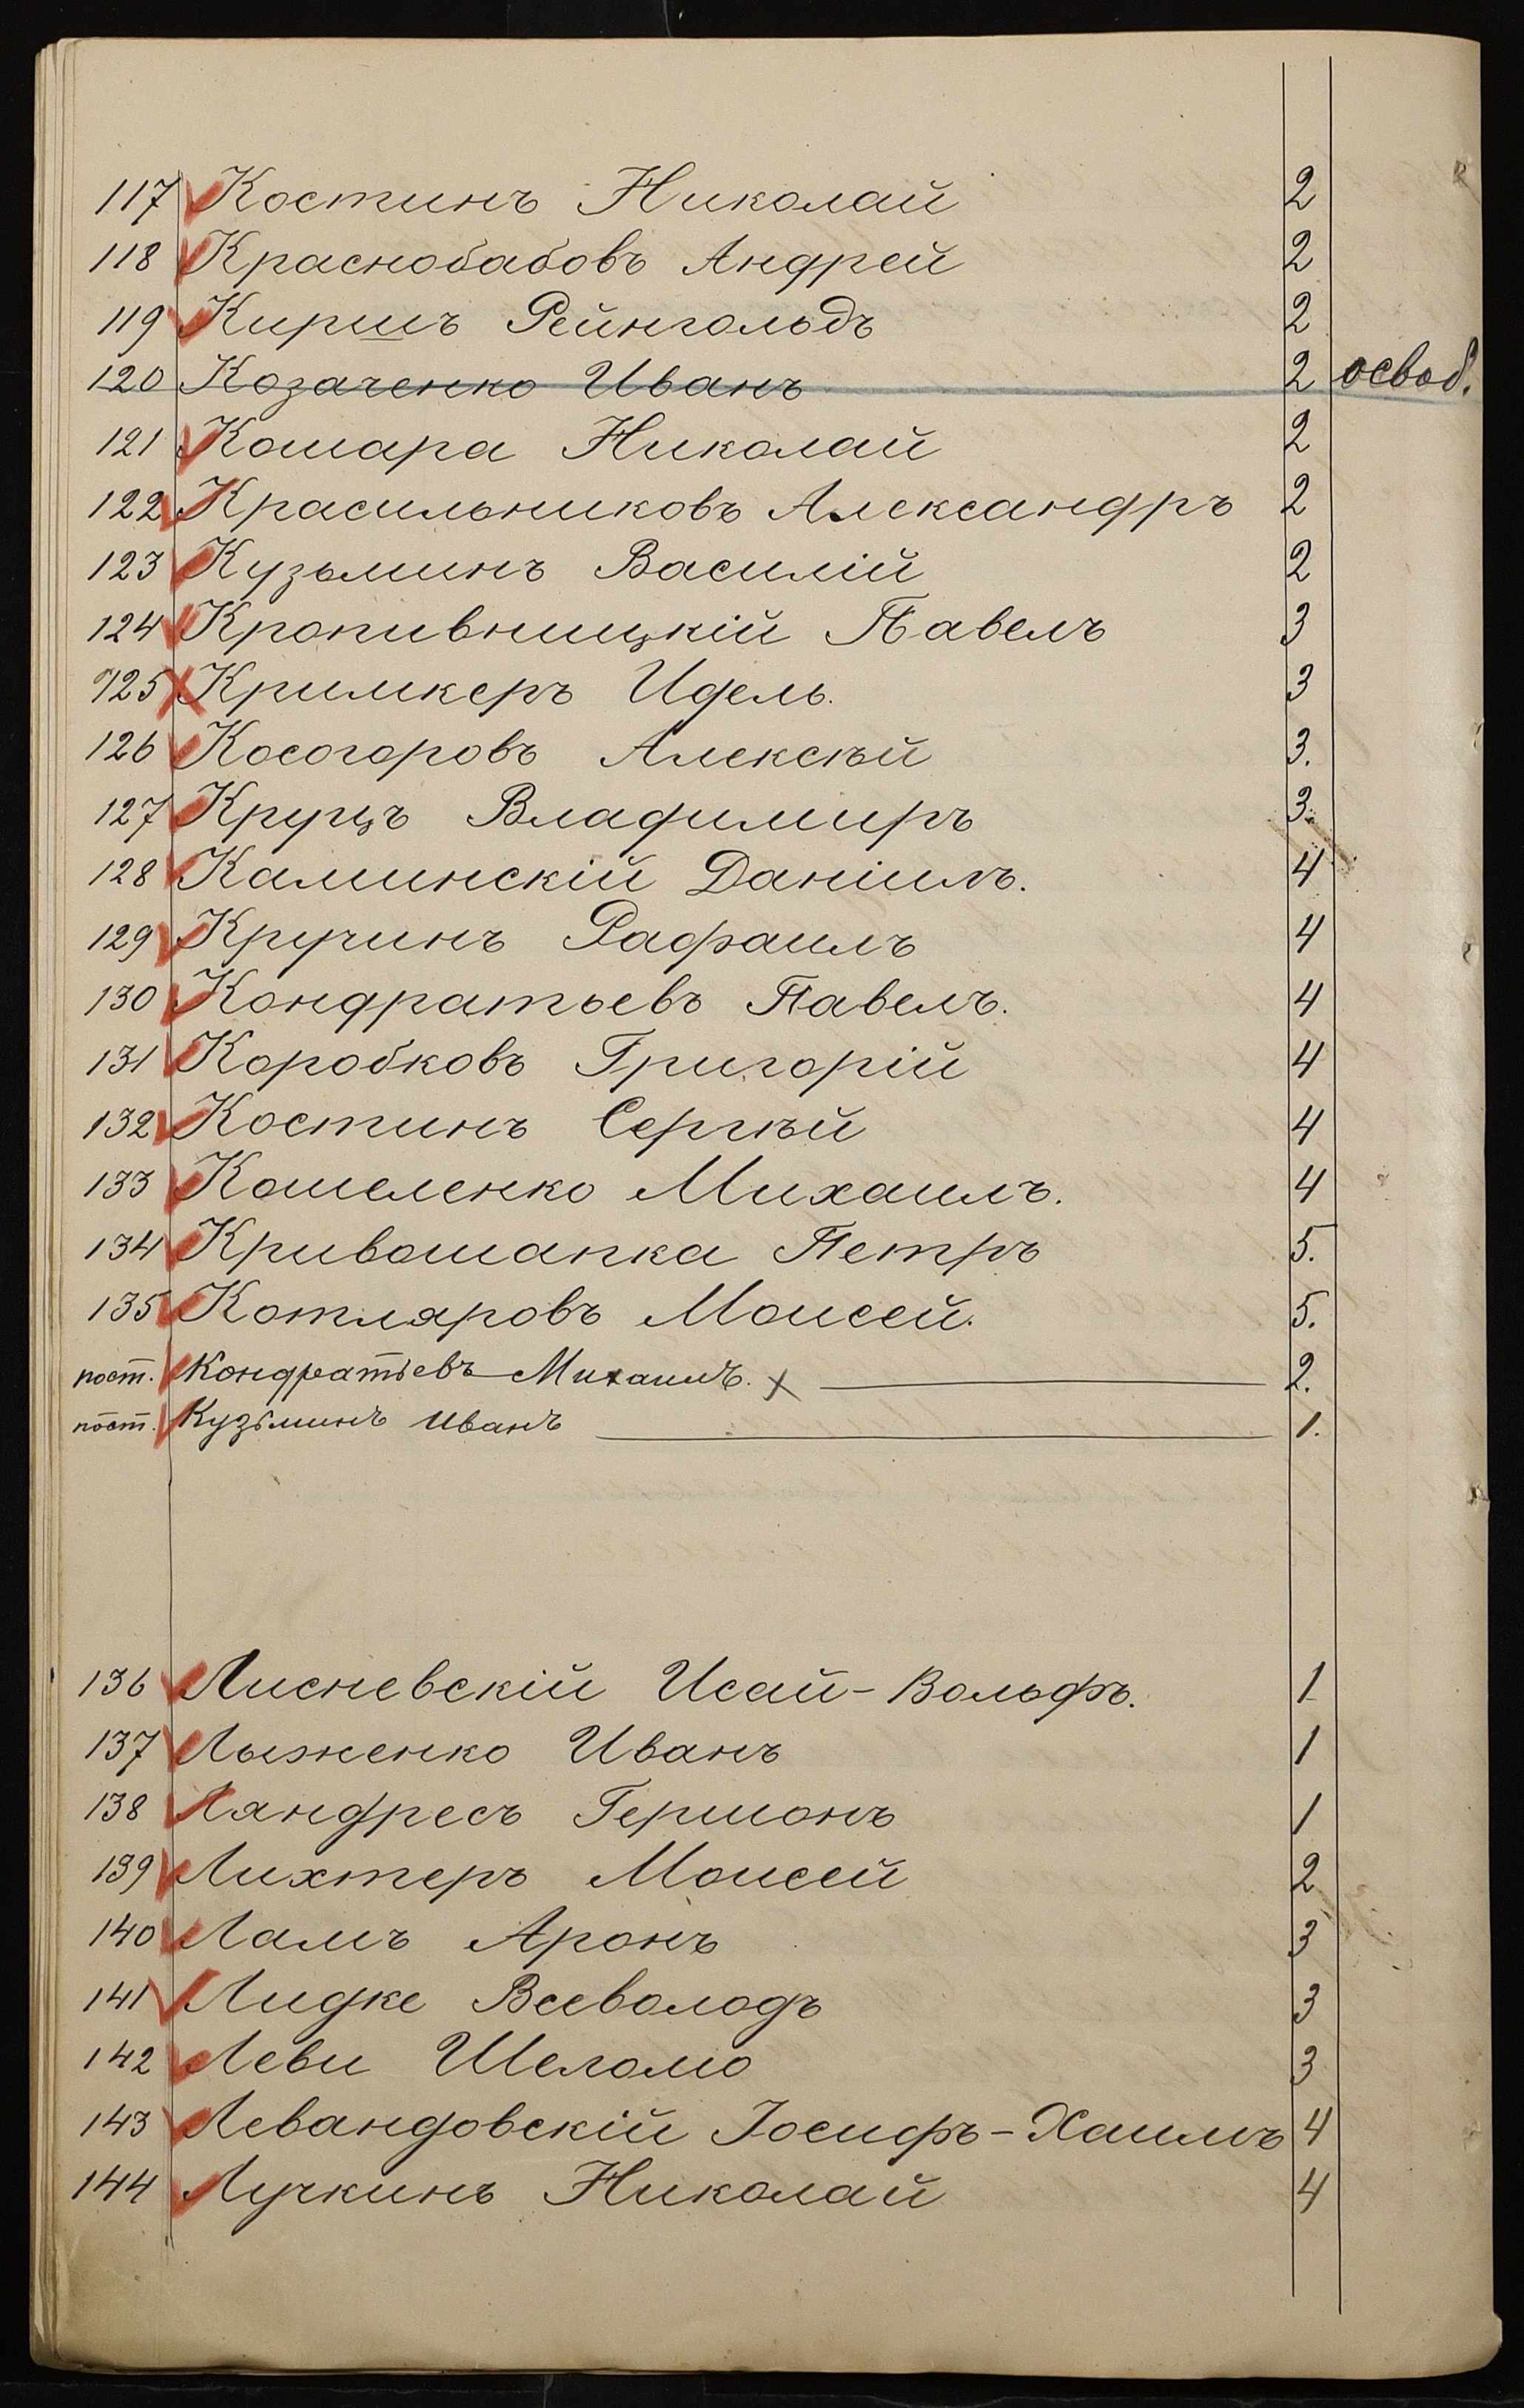 117 Костинъ Николай 2
118 Краснобабовъ Андрей 2
119 Киршъ Рейнгольдъ 2
120 Козаченко Иванъ 2 освоб.
121 Кошара Николай 2
122 Красильниковъ Александръ 2
123 Кузьминъ Василій 2
124 Кропивницкій Павелъ 3
125 Кримкеръ Идель. 3
126 Косогоровъ Алексѣй 3.
127 Крупъ Владимиръ 3.
128 Каминскій Даніилъ. 4
129 Кручинъ Рафаилъ 4
130 Кондратьевъ Павелъ. 4
131 Коробковъ Григорій 4
132 Костинъ Сергѣй 4
133 Кошеленко Михаилъ. 4
134 Кривошапка Петръ 5.
135 Котляровъ Моисей. 5.
пост. Кондратьевъ Михаилъ. х 2.
пост. Кузьминъ Иванъ 1.
136 Лисневскій Исай-Вольфъ. 1
137 Лыженко Иванъ 1
138 Ляндресъ Германъ 1
139 Лихтеръ Моисей 2
140 Ламъ Аронъ 3
141 Лидке Всеволодъ 3
142 Леви Шеломо 3
143 Левандовскій Іосифъ-Хаимъ 4
144 Лучкинъ Николай 4